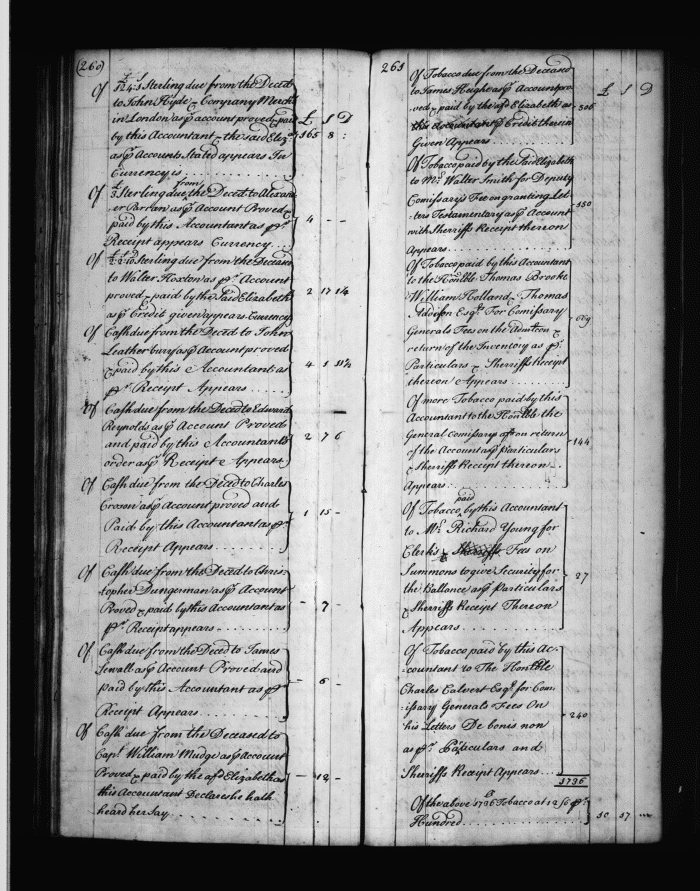 (260)
£ S D
Of 124:1 Sterling due from the Decd
to John Hyde & Company Merchts
in London as ꝑ account proved & paid
by this Accountant & the said Eliz. 165 8 :
as ꝑ Accounts Stated appears In
Currency is
Of £3 Sterling due from the Decd to Alexand
er Parran as ꝑ Account Proved &
paid by this Accountant as ꝑr 4 - -
Receipt appears Currency...
Of Sterling due from the Deceased
to Walter Hoxton as ꝑr Account
proved & paid by the Said Elizabeth 2 17 1¼
as ꝑ Credit given appears Currency
Of Cash due from the Decd to John
Leatherbury as ꝑ Account proved
& paid by this Accountant as 4 1 11½
ꝑr Receipt Appears......
Of Cash due from the Decd to Edward
Reynolds as ꝑ Account Proved
and paid by this Accountants 2 7 6
order as ꝑ Receipt Appears
Of Cash due from the Decd to Charles
as ꝑ Account proved and
Paid by this Accountant as ꝑr 1 15 -
Receipt Appears........
Of Cash due from the Decd to Chris-
topher Dungerman as ꝑ Account
Proved & paid by this Accountant as - 7 -
ꝑr Receipt appears........
Of Cash due from the Decd to James
Sewall as ꝑ Account Proved and
paid by this Accountant as ꝑr - 6 -
Receipt Appears..........
Of Cash due from the Deceased to
Capt. William Mudge as ꝑ Account
Proved & paid by the afd Elizabeth as - 12 -
this Accountant Declares he hath
heard her Say............
261
£ S D
Of Tobacco due from the Deceased
to James Heighe as ꝑ Account pro-
ved & paid by the afd Elizabeth as 306
this Accountants Credit therein
Given Appears........
Of Tobacco paid by the Said Elizabeth
to Mr. Walter Smith for Deputy
Comissary's Fee on granting Let- 350
ters Testamentary as ꝑ Account
with Sherriffs Receipt thereon
Appears............
Of Tobacco paid by this Accountant
to the Honble Thomas Brooke
William Holland & Thomas
Addison Esqrs. For Comissary 669
Generals Fees on the Admtion &
return of the Inventory as ꝑr
Particulars & Sherriffs Receipt
thereon Appears........
Of more Tobacco paid by this
Accountant to the Honble the
General Comissary on return 144
of the Account as ꝑ Particulars
& Sherriffs Receipt thereon...
Appears............
Of Tobacco paid by this Accountant
to Mr. Richard Young for
Clerk's Fees on
Summons to give Security for 27
the Ballance as ꝑ Particulars
& Sherriffs Receipt Thereon
Appears............
Of Tobacco paid by this Ac-
countant to The Honble
Charles Calvert Esqr. for Com-
issary Generals Fees On 240
his Letters De bonis non
as ꝑr Particulars and
Sherriffs Receipt Appears...
1736
Of the above 1736 lb Tobacco at ꝑr
Hundred........